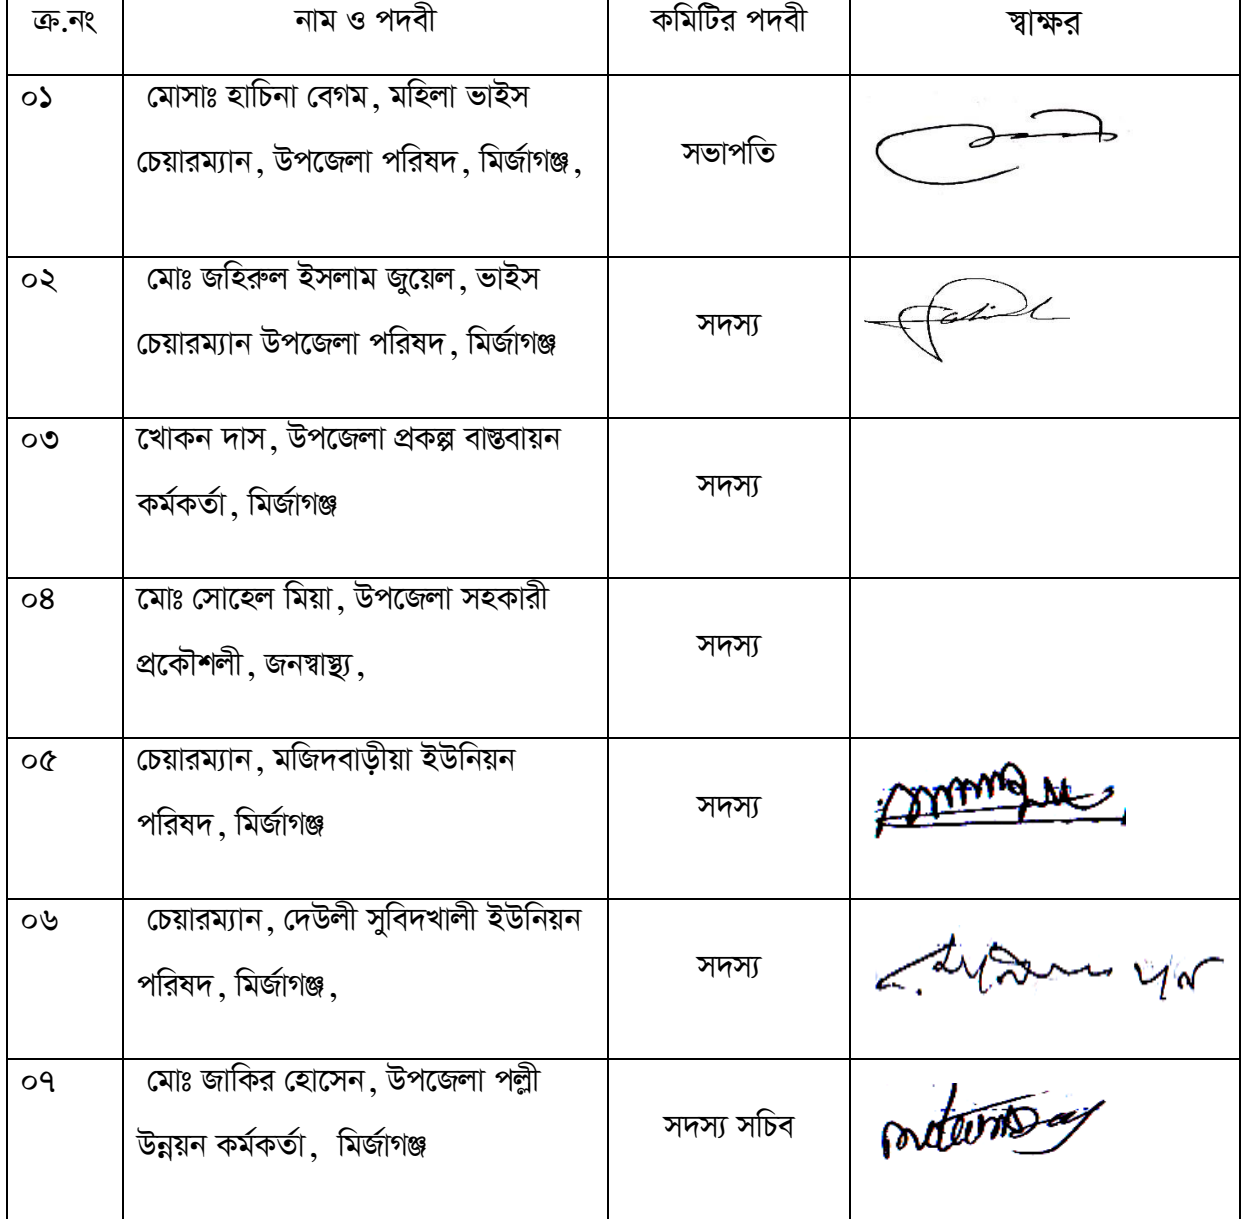 ক্র.নং নাম ও পদবী কমিটির পদবী স্বাক্ষর
০১ মোসাঃ হাচিনা বেগম, মহিলা ভাইস
চেয়ারম্যান, উপজেলা পরিষদ, মির্জাগঞ্জ, সভাপতি
০২ মোঃ জহিরুল ইসলাম জুয়েল, ভাইস
চেয়ারম্যান উপজেলা পরিষদ, মির্জাগঞ্জ সদস্য
০৩ খোকন দাস, উপজেলা প্রকল্প বাস্তবায়ন
কর্মকর্তা, মির্জাগঞ্জ সদস্য
০৪ মোঃ সোহেল মিয়া, উপজেলা সহকারী
প্রকৌশলী, জনস্বাস্থ্য, সদস্য
০৫ চেয়ারম্যান, মজিদবাড়ীয়া ইউনিয়ন
পরিষদ, মির্জাগঞ্জ সদস্য
০৬ চেয়ারম্যান, দেউলী সুবিদখালী ইউনিয়ন
পরিষদ, মির্জাগঞ্জ, সদস্য
০৭ মোঃ জাকির হোসেন, উপজেলা পল্লী
উন্নয়ন কর্মকর্তা, মির্জাগঞ্জ সদস্য সচিব